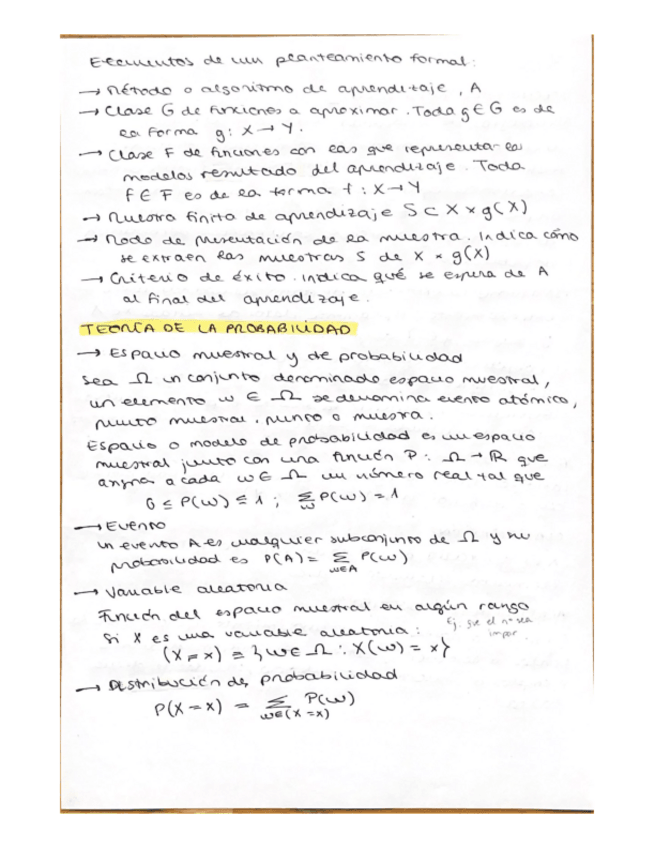 Elementos de un planteamiento formal:
→ Método o algoritmo de aprendizaje, A
→ Clase G de funciones a aproximar. Toda g ∈ G es de
la forma g: X → Y.
→ Clase F de funciones con las que representa los
modelos resultado del aprendizaje. Toda
f ∈ F es de la forma f: X → Y
→ Muestra finita de aprendizaje S ⊂ X × g(X)
→ Modo de presentación de la muestra. Indica cómo
se extraen las muestras S de X × g(X)
→ Criterio de éxito. Indica qué se espera de A
al final del aprendizaje.
TEORÍA DE LA PROBABILIDAD
→ Espacio muestral y de probabilidad
Sea Ω un conjunto denominado espacio muestral,
un elemento w ∈ Ω se denomina evento atómico,
punto muestral, punto o muestra.
Espacio o modelo de probabilidad es un espacio
muestral junto con una función P: Ω → ℝ que
asigna a cada w ∈ Ω un número real tal que
0 ≤ P(w) ≤ 1 ; Σ_w P(w) = 1
→ Evento
un evento A es cualquier subconjunto de Ω y su
probabilidad es P(A) = Σ_{w∈A} P(w)
→ Variable aleatoria
Función del espacio muestral en algún rango
Ej. que el nº sea
impar
Si X es una variable aleatoria:
(X = x) = {w ∈ Ω : X(w) = x}
→ Distribución de probabilidad
P(X = x) = Σ_{w∈(X=x)} P(w)